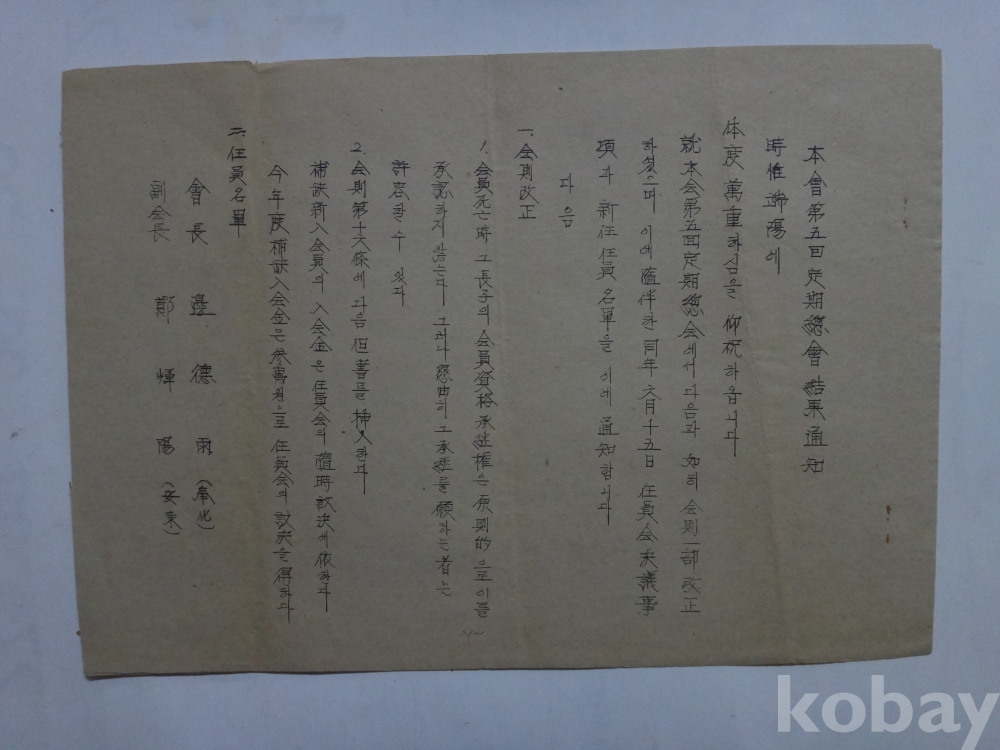 本會第五回定期總會 結果通知
時惟端陽에
体度萬重하심을 仰祝하옵니다
就 本会第五回定期總会에서 다음과 如히 会則一部改正
하였으며 이에 隨伴한 同年 六月十五日 任員会 決議事
項과 新任任員名單을 이에 通知합니다
다음
一. 会則改正
1. 会員死亡時 그 長子의 会員資格承継權은 原則的으로 이를
承認하지 않는다 그러나 懇曲히 그 承継를 願하는 者는
許容할 수 있다
2. 会則第十六條에 다음 但書를 挿入한다
補缺新入会員의 入会金은 任員会의 隨時 議決에 依한다
今年度 補缺入会金은 參萬원으로 任員会의 議決을 得하다
二. 任員名單
會長 邊德雨 (奉化)
副会長 鄭煇陽 (安東)
~1~
kobay